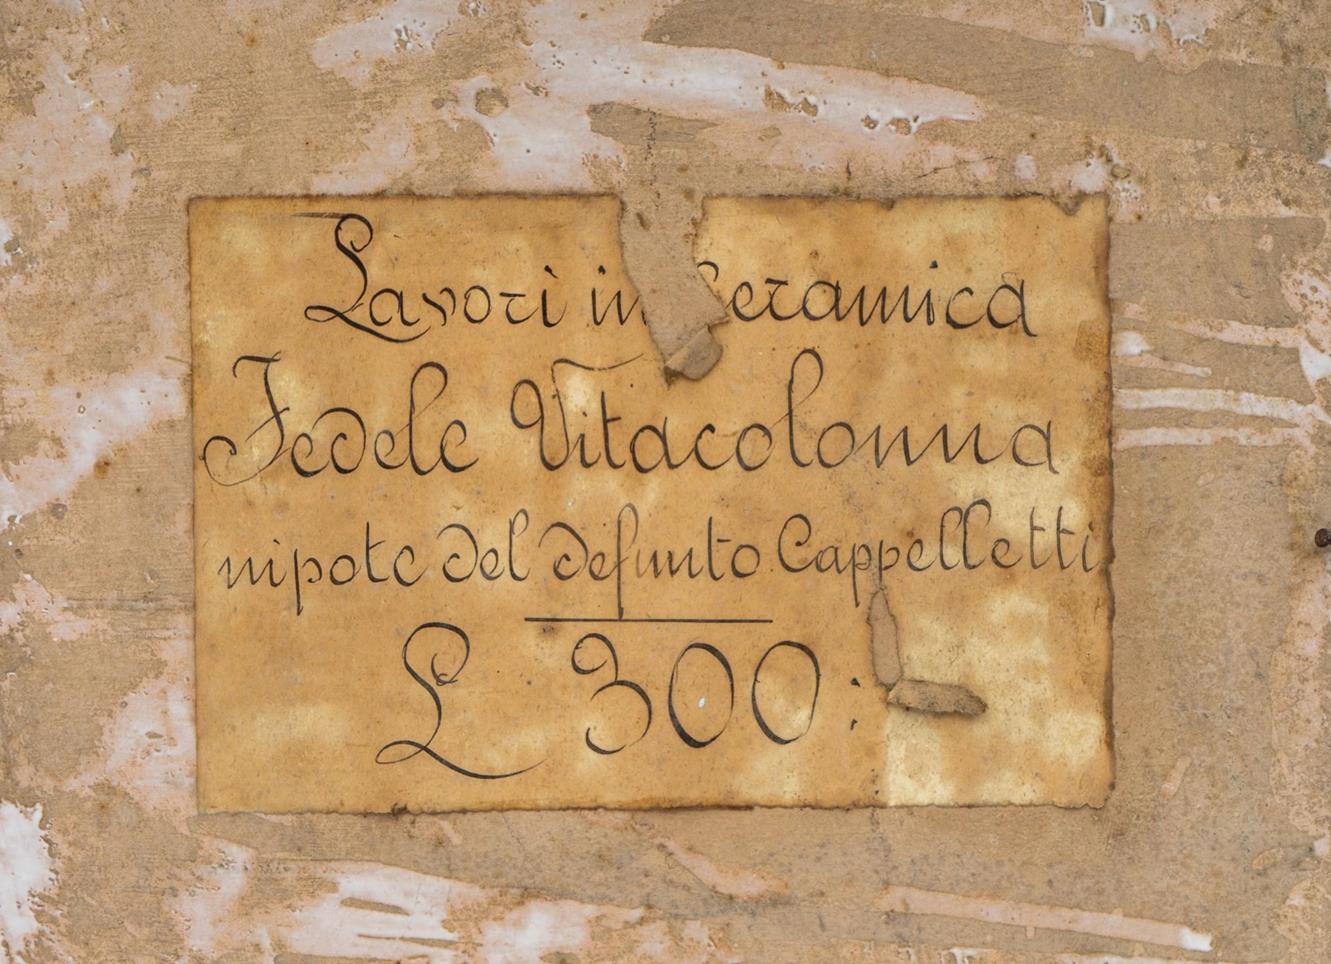 Lavori in Ceramica
Fedele Vitacolonna
nipote del defunto Cappelletti
L 300: